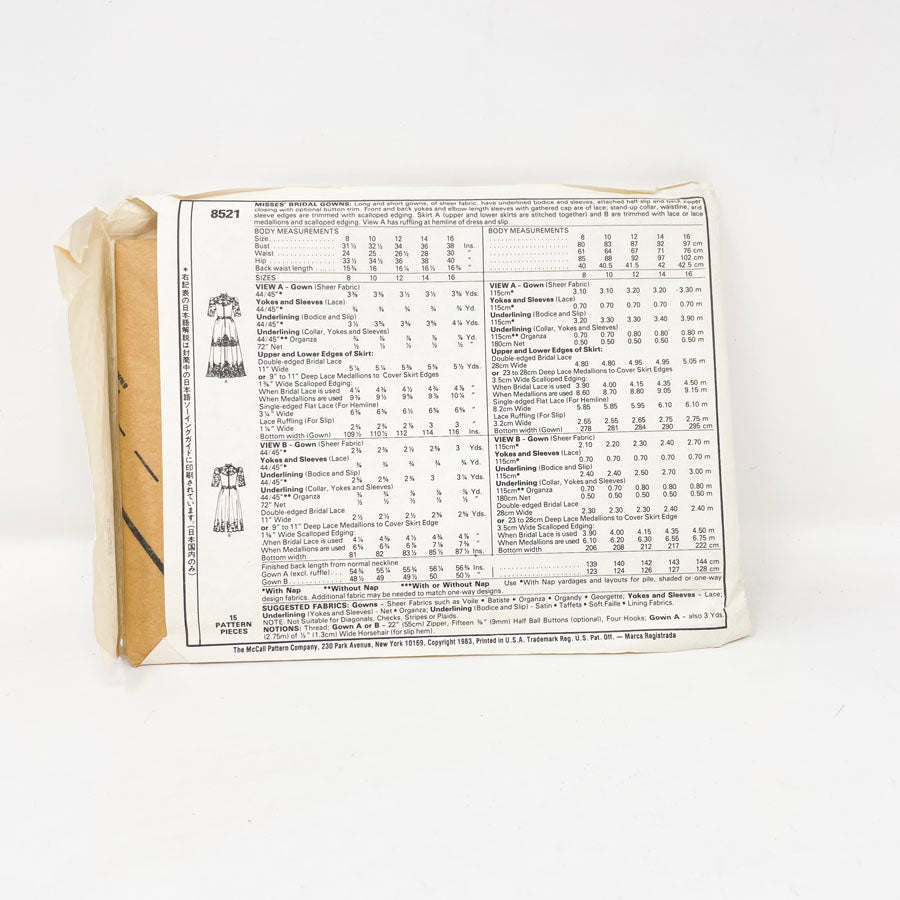 8521
MISSES' BRIDAL GOWNS: Long and short gowns, of sheer fabric, have underlined bodice and sleeves, attached half-slip and back zipper
closing with optional button trim. Front and back yokes and elbow-length sleeves with gathered cap are of lace; stand-up collar, waistline, and
sleeve edges are trimmed with scalloped edging. Skirt A (upper and lower skirts are stitched together) and B are trimmed with lace or lace
medallions and scalloped edging. View A has ruffling at hemline of dress and slip.
BODY MEASUREMENTS
Size 8 10 12 14 16
Bust 31½ 32½ 34 36 38 Ins.
Waist 24 25 26½ 28 30 "
Hip 33½ 34½ 36 38 40 "
Back waist length 15¾ 16 16¼ 16½ 16¾ "
SIZES 8 10 12 14 16
VIEW A - Gown (Sheer Fabric)
44/45"* 3⅜ 3⅜ 3½ 3½ 3⅝ Yds.
Yokes and Sleeves (Lace)
44/45"* ¾ ¾ ¾ ¾ ¾ Yd.
Underlining (Bodice and Slip)
44/45"* 3½ 3⅝ 3⅝ 3¾ 4¼ Yds.
Underlining (Collar, Yokes and Sleeves)
44/45"** Organza ¾ ¾ ⅞ ⅞ ⅞ Yd.
72" Net ½ ½ ½ ½ ½ "
Upper and Lower Edges of Skirt:
Double-edged Bridal Lace
11" Wide 5¼ 5¼ 5⅜ 5⅜ 5½ Yds.
or 9" to 11" Deep Lace Medallions to Cover Skirt Edges
1⅜" Wide Scalloped Edging:
When Bridal Lace is used 4¼ 4⅜ 4½ 4¾ 4⅞ "
When Medallions are used 9⅜ 9½ 9⅝ 9⅞ 10¼ "
Single-edged Flat Lace (For Hemline)
3¼" Wide 6⅜ 6⅜ 6½ 6⅝ 6⅝ "
Lace Ruffling (For Slip)
1¼" Wide 2¾ 2¾ 2⅞ 3 3 "
Bottom width (Gown) 109½ 110½ 112 114 116 Ins.
VIEW B - Gown (Sheer Fabric)
44/45"* 2⅜ 2⅜ 2½ 2⅝ 3 Yds.
Yokes and Sleeves (Lace)
44/45"* ¾ ¾ ¾ ¾ ¾ Yd.
Underlining (Bodice and Slip)
44/45"* 2⅝ 2⅝ 2¾ 3 3¼ Yds.
Underlining (Collar, Yokes and Sleeves)
44/45"** Organza ¾ ¾ ⅞ ⅞ ⅞ Yd.
72" Net ½ ½ ½ ½ ½ "
Double-edged Bridal Lace
11" Wide 2½ 2½ 2½ 2⅝ 2⅝ Yds.
or 9" to 11" Deep Lace Medallions to Cover Skirt Edge
1⅜" Wide Scalloped Edging:
When Bridal Lace is used 4¼ 4⅜ 4½ 4¾ 4⅞ "
When Medallions are used 6⅝ 6¾ 6⅞ 7⅛ 7⅜ "
Bottom width 81 82 83½ 85½ 87½ Ins.
Finished back length from normal neckline
Gown A (excl. ruffle) 54¾ 55¼ 55¾ 56¼ 56¾ Ins.
Gown B 48½ 49 49½ 50 50½ "
BODY MEASUREMENTS
8 10 12 14 16
80 83 87 92 97 cm
61 64 67 71 76 cm
85 88 92 97 102 cm
40 40.5 41.5 42 42.5 cm
8 10 12 14 16
VIEW A - Gown (Sheer Fabric)
115cm* 3.10 3.10 3.20 3.20 3.30 m
Yokes and Sleeves (Lace)
115cm* 0.70 0.70 0.70 0.70 0.70 m
Underlining (Bodice and Slip)
115cm* 3.20 3.30 3.30 3.40 3.90 m
Underlining (Collar, Yokes and Sleeves)
115cm** Organza 0.70 0.70 0.80 0.80 0.80 m
180cm Net 0.50 0.50 0.50 0.50 0.50 m
Upper and Lower Edges of Skirt:
Double-edged Bridal Lace
28cm Wide 4.80 4.80 4.95 4.95 5.05 m
or 23 to 28cm Deep Lace Medallions to Cover Skirt Edges
3.5cm Wide Scalloped Edging:
When Bridal Lace is used 3.90 4.00 4.15 4.35 4.50 m
When Medallions are used 8.60 8.70 8.80 9.05 9.15 m
Single-edged Flat Lace (For Hemline)
8.2cm Wide 5.85 5.85 5.95 6.10 6.10 m
Lace Ruffling (For Slip)
3.2cm Wide 2.55 2.55 2.65 2.75 2.75 m
Bottom width (Gown) 278 281 284 290 295 cm
VIEW B - Gown (Sheer Fabric)
115cm* 2.10 2.20 2.30 2.40 2.70 m
Yokes and Sleeves (Lace)
115cm* 0.70 0.70 0.70 0.70 0.70 m
Underlining (Bodice and Slip)
115cm* 2.40 2.40 2.50 2.70 3.00 m
Underlining (Collar, Yokes and Sleeves)
115cm** Organza 0.70 0.70 0.80 0.80 0.80 m
180cm Net 0.50 0.50 0.50 0.50 0.50 m
Double-edged Bridal Lace
28cm Wide 2.30 2.30 2.30 2.40 2.40 m
or 23 to 28cm Deep Lace Medallions to Cover Skirt Edge
3.5cm Wide Scalloped Edging:
When Bridal Lace is used 3.90 4.00 4.15 4.35 4.50 m
When Medallions are used 6.10 6.20 6.30 6.55 6.75 m
Bottom width 206 208 212 217 222 cm
139 140 142 143 144 cm
123 124 126 127 128 cm
*With Nap **Without Nap ***With or Without Nap Use *With Nap yardages and layouts for pile, shaded or one-way
design fabrics. Additional fabric may be needed to match one-way designs.
SUGGESTED FABRICS: Gowns - Sheer Fabrics such as Voile • Batiste • Organza • Organdy • Georgette; Yokes and Sleeves - Lace;
Underlining (Yokes and Sleeves) - Net • Organza; Underlining (Bodice and Slip) - Satin • Taffeta • Soft Faille • Lining Fabrics.
NOTE: Not Suitable for Diagonals, Checks, Stripes or Plaids.
NOTIONS: Thread; Gown A or B - 22" (55cm) Zipper, Fifteen ⅜" (9mm) Half Ball Buttons (optional), Four Hooks; Gown A - also 3 Yds.
(2.75m) of ½" (1.3cm) Wide Horsehair (for slip hem).
The McCall Pattern Company, 230 Park Avenue, New York 10169, Copyright 1983, Printed in U.S.A. Trademark Reg. U.S. Pat. Off. — Marca Registrada
15
PATTERN
PIECES
A
*右記表の日本語解説は封筒中の日本語ソーイングガイドに印刷されています。(日本国内のみ)